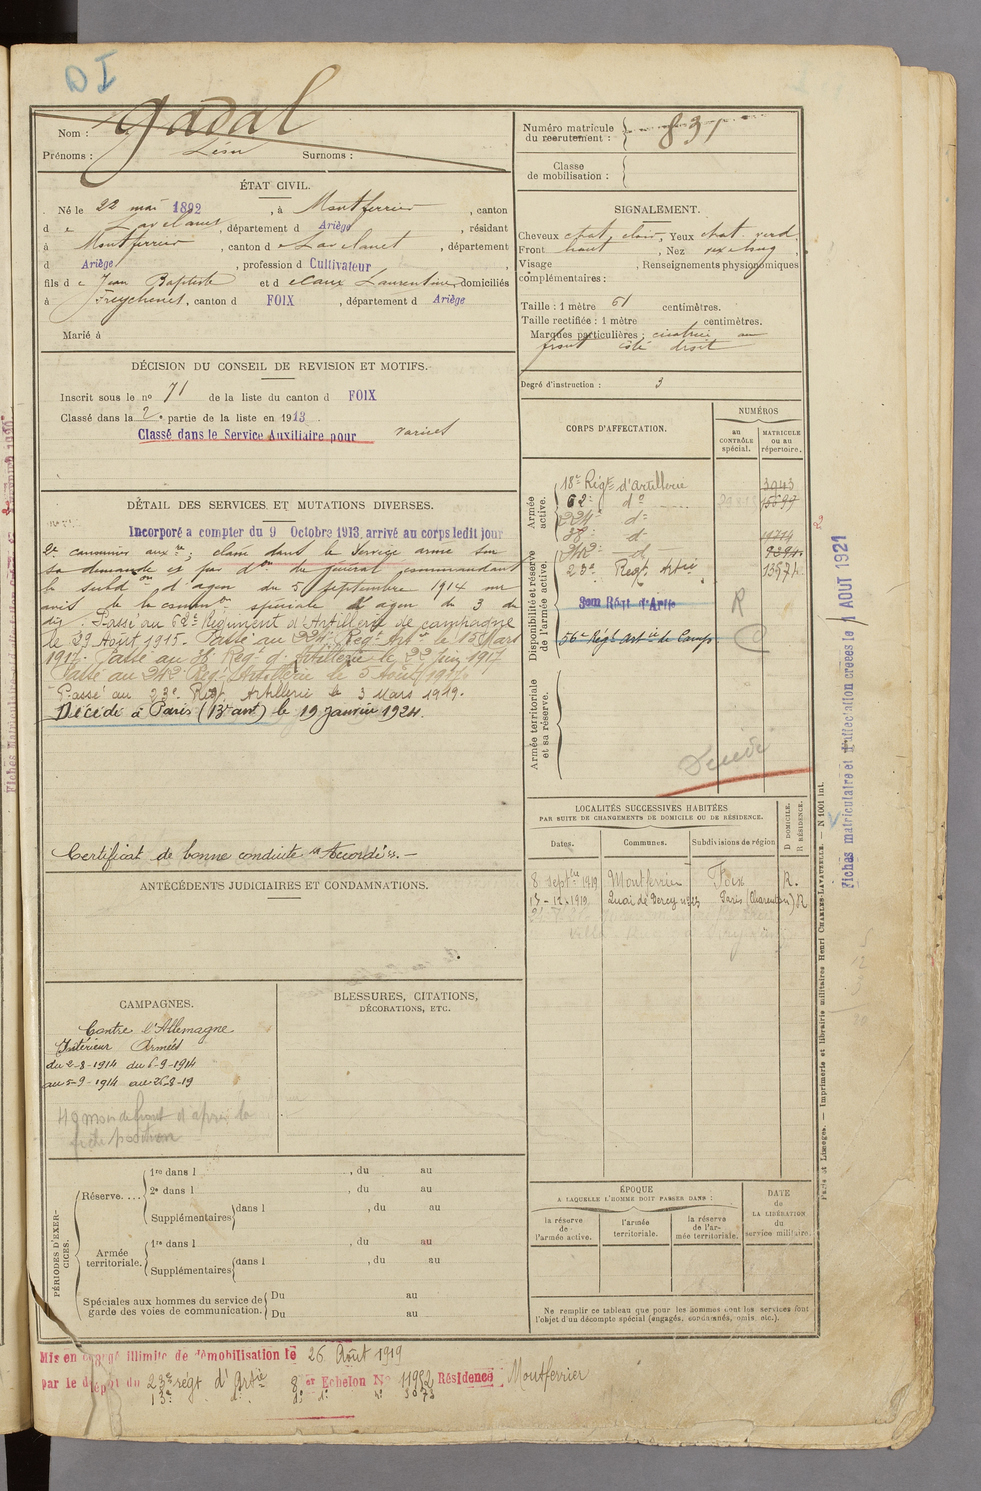 DI
Nom : Gadal
Prénoms : Léon Surnoms :
ÉTAT CIVIL.
Né le 22 mai 1892, à Montferrier, canton
d e Lavelanet, département d Ariège, résidant
à Montferrier, canton d e Lavelanet, département
d Ariège, profession d Cultivateur
fils d e Jean Baptiste et d Laurentine, domiciliés
à Freychenet, canton d FOIX, département d Ariège
Marié à
DÉCISION DU CONSEIL DE REVISION ET MOTIFS.
Inscrit sous le no 71 de la liste du canton d FOIX
Classé dans la 2e partie de la liste en 1913
Classé dans le Service Auxiliaire pour varices
DÉTAIL DES SERVICES ET MUTATIONS DIVERSES.
Incorporé a compter du 9 Octobre 1913, arrivé au corps ledit jour
2e canonnier auxre; classé dans le service armé sur
sa demande et par don du général commandant
la subdon d'agen du 5 septembre 1914 sur
avis de la common spéciale d'agen du 3 du
dit. Passé au 62e Régiment d'Artillerie de campagne
le 29 Août 1915. Passé au 224e Régt Artie le 15 Mars
1917. Passé au Régt d'Artillerie le 22 Juin 1917
Passé au 242e Régt Artillerie le 5 Août 1917.
Passé au 23e Régt Artillerie le 3 Mars 1919.
Décédé à Paris (13e arrt) le 19 Janvier 1924.
Certificat de bonne conduite "Accordé".—
ANTÉCÉDENTS JUDICIAIRES ET CONDAMNATIONS.
CAMPAGNES.
Contre l'Allemagne
Intérieur Armées
du 2-8-1914 du 6-9-1914
au 5-9-1914 au 26-8-19
49 mois de front d'après la
fiche position
BLESSURES, CITATIONS,
DÉCORATIONS, ETC.
PÉRIODES D'EXERCICES.
Réserve....
1re dans l , du au
2e dans l , du au
Supplémentaires dans l , du au
Armée territoriale.
1re dans l , du au
Supplémentaires dans l , du au
Spéciales aux hommes du service de garde des voies de communication.
Du au
Du au
Numéro matricule
du recrutement : 831
Classe
de mobilisation :
SIGNALEMENT.
Cheveux chat. clair, Yeux chat. verd.
Front haut, Nez vex. long,
Visage , Renseignements physionomiques
complémentaires :
Taille : 1 mètre 61 centimètres.
Taille rectifiée : 1 mètre centimètres.
Marques particulières : cicatrice au
front côté droit
Degré d'instruction : 3
CORPS D'AFFECTATION.
NUMÉROS
au CONTRÔLE spécial.
MATRICULE ou au répertoire.
Armée active.
18e Régt d'artillerie 3943
62e do 15697
224e do
do
242e do
Disponibilité et réserve de l'armée active.
23e Régt Artie
R
56e Régt Artie de Camp
Armée territoriale et sa réserve.
Décédé
LOCALITÉS SUCCESSIVES HABITÉES
PAR SUITE DE CHANGEMENTS DE DOMICILE OU DE RÉSIDENCE.
Dates. Communes. Subdivisions de région D DOMICILE. R RÉSIDENCE.
8 septbre 1919 Montferrier Foix R.
13-12-1919 Quai de Bercy Paris (Charenton) R
ÉPOQUE
A LAQUELLE L'HOMME DOIT PASSER DANS :
la réserve de l'armée active.
l'armée territoriale.
la réserve de l'armée territoriale.
DATE de LA LIBÉRATION du service militaire.
Ne remplir ce tableau que pour les hommes dont les services font
l'objet d'un décompte spécial (engagés, condamnés, omis, etc.).
Mis en congé illimité de démobilisation le 26 Août 1919
par le dépôt du 23e régt d'Artie 8 er Echelon No 11952 Résidence Montferrier
Fiches matriculaire et d'affectation créées le 1 AOUT 1921
Paris et Limoges. — Imprimerie et librairie militaires Henri CHARLES-LAVAUZELLE. — N 1001 int.